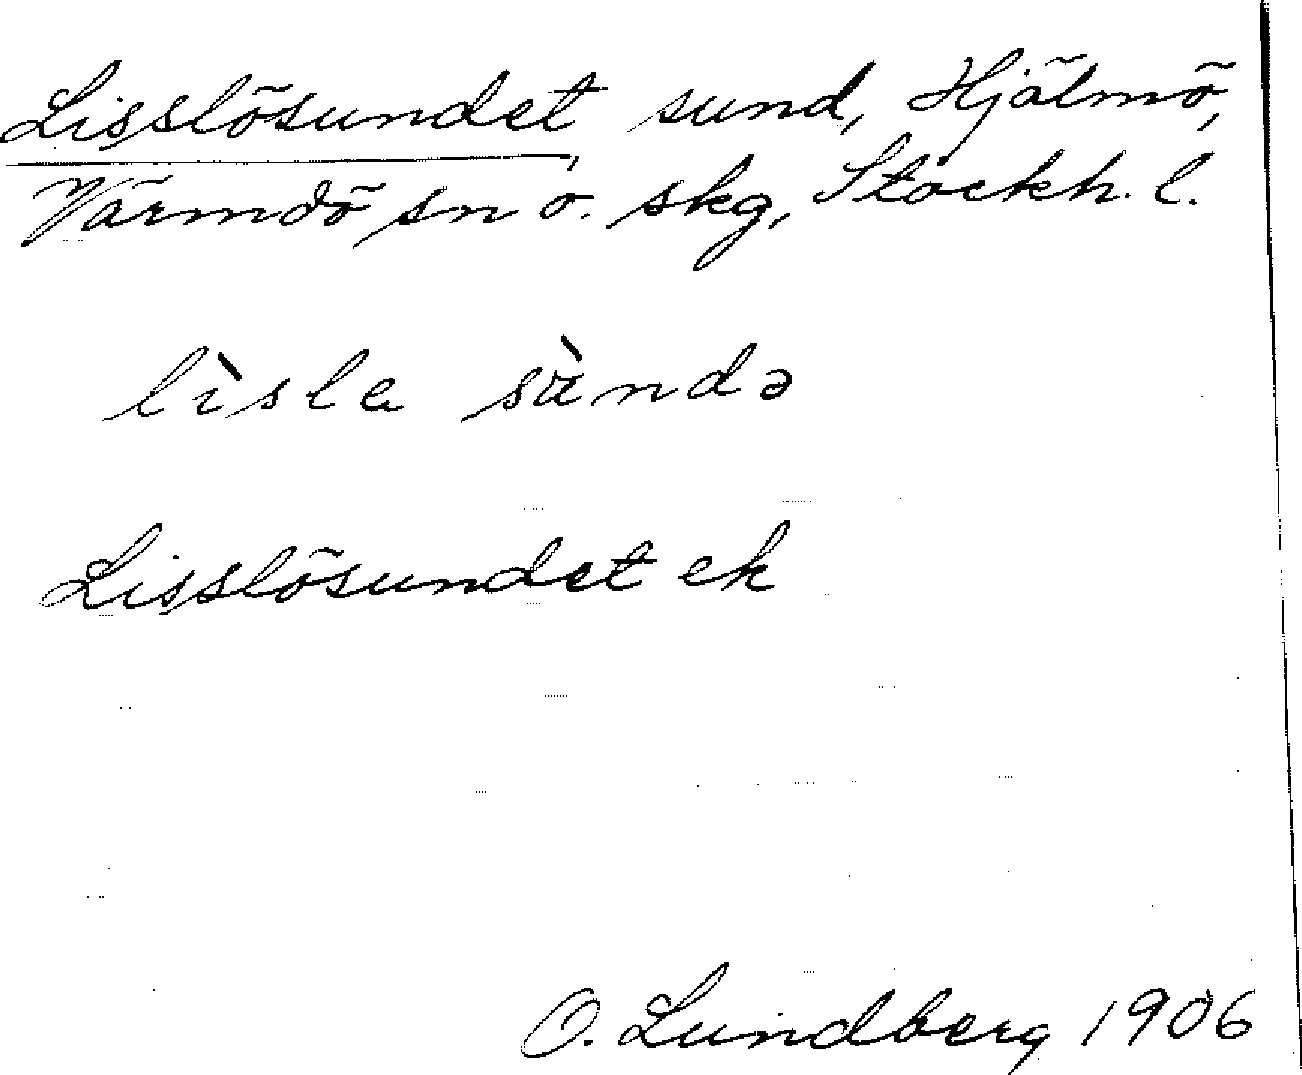 Lisslösundet, sund, Hjälmö,
Värmdö sn o. skg, Stockh. l.
lìsla sùndə
Lisslösundet ek
O. Lundberg 1906